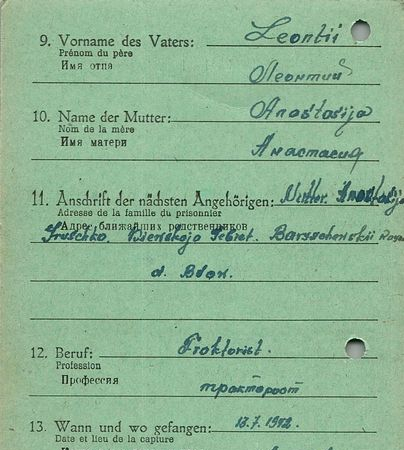 9. Vorname des Vaters: Leontii
Prénom du père
Имя отца
Леонтий
10. Name der Mutter: Anastasija
Nom de la mère
Имя матери
Анастасия
11. Anschrift der nächsten Angehörigen: Mutter. Anastasija
Adresse de la famille du prisonnier
Адрес ближайших родственников
Gebiet.
d.
12. Beruf: Traktorist.
Profession
Профессия
13. Wann und wo gefangen: 1942
Date et lieu de la capture